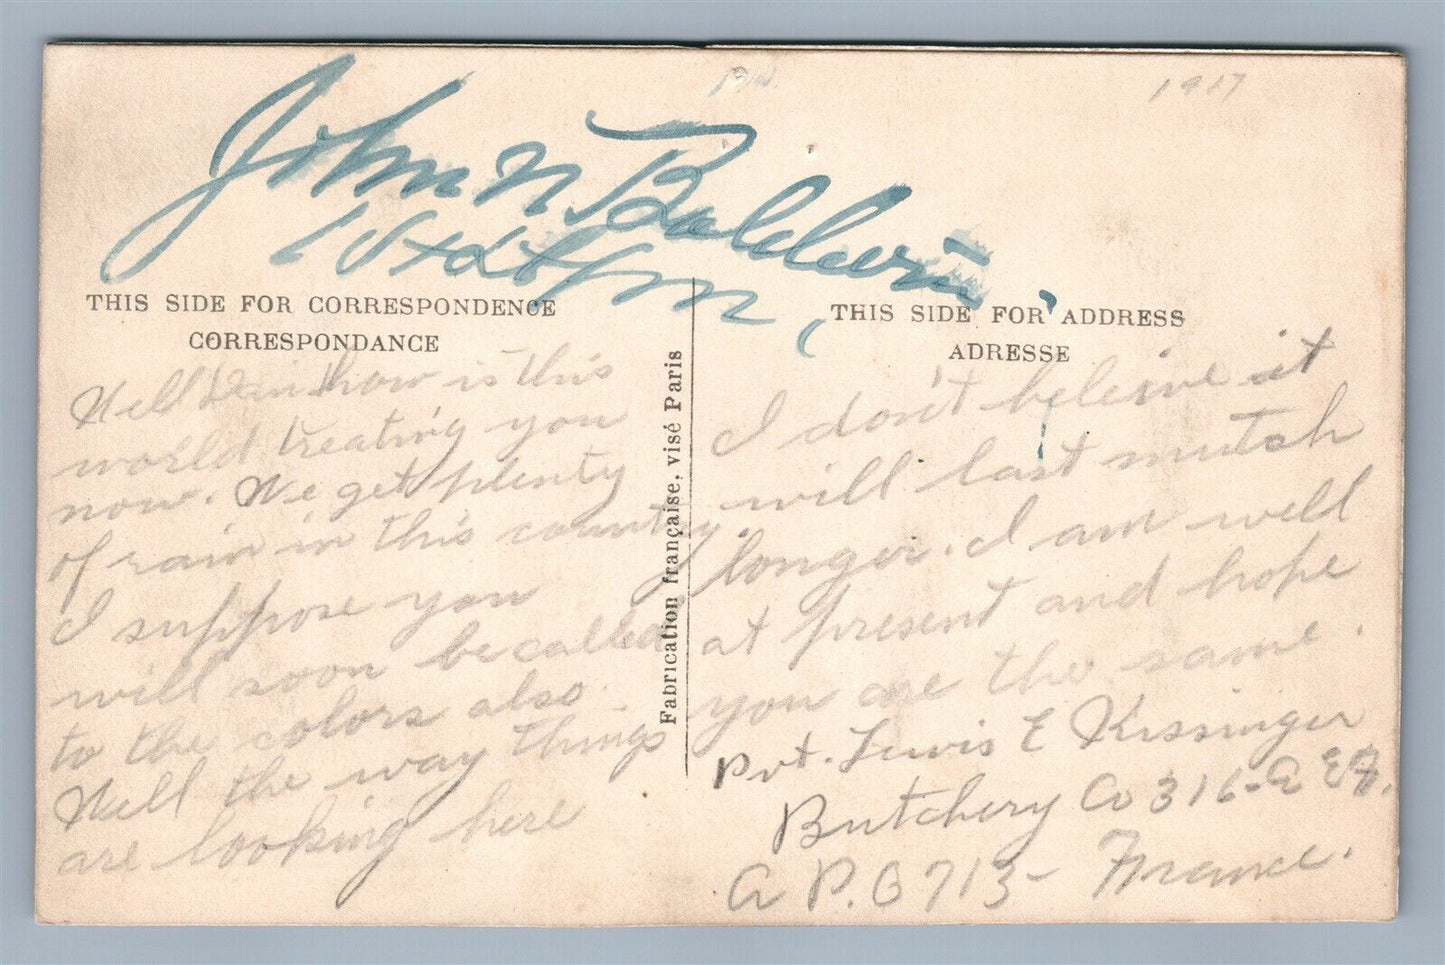 1917
John N Baldwin
1st Lt
THIS SIDE FOR CORRESPONDENCE
CORRESPONDANCE
Well how is this
world treating you
now. We get plenty
of rain in this country.
I suppose you
will soon be called
to the colors also.
Well the way things
are looking here
Fabrication française, visé Paris
THIS SIDE FOR ADDRESS
ADRESSE
I don't beleive it
will last mutch
longer. I am well
at present and hope
you are the same.
Pvt. Lewis E Kissinger
Butchery Co 316 - A E F.
A P. O 713 - France.